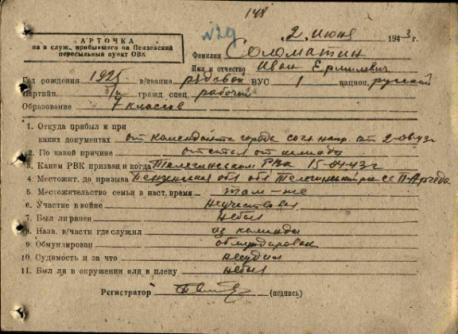 148
№29
2 июня 1943 г.
КАРТОЧКА
на в служ. прибывшего на Пензенский
пересыльный пункт ОВК
Фамилия Соломатин
Имя и отчество Иван
Год рождения 1925 в/звания рядовой ВУС 1 национ. русский
Партийн. б/п гражд спец рабочий
Образование 7 классов
1. Откуда прибыл и при
каких документах от коменданта города
2. По какой причине отстал от команды
3. Каким РВК призван и когда РВК 15-04-43 г
4. Местожит. до призыва Пензенская обл.
5. Местожительство семьи в наст. время там-же
6. Участие в войне не участвовал
7. Был ли ранен не был
8. Назв. в/части где служил из команды
9. Обмундирован обмундирован
10. Судимость и за что не судим
11. Был ли в окружении или в плену не был
Регистратор (подпись)